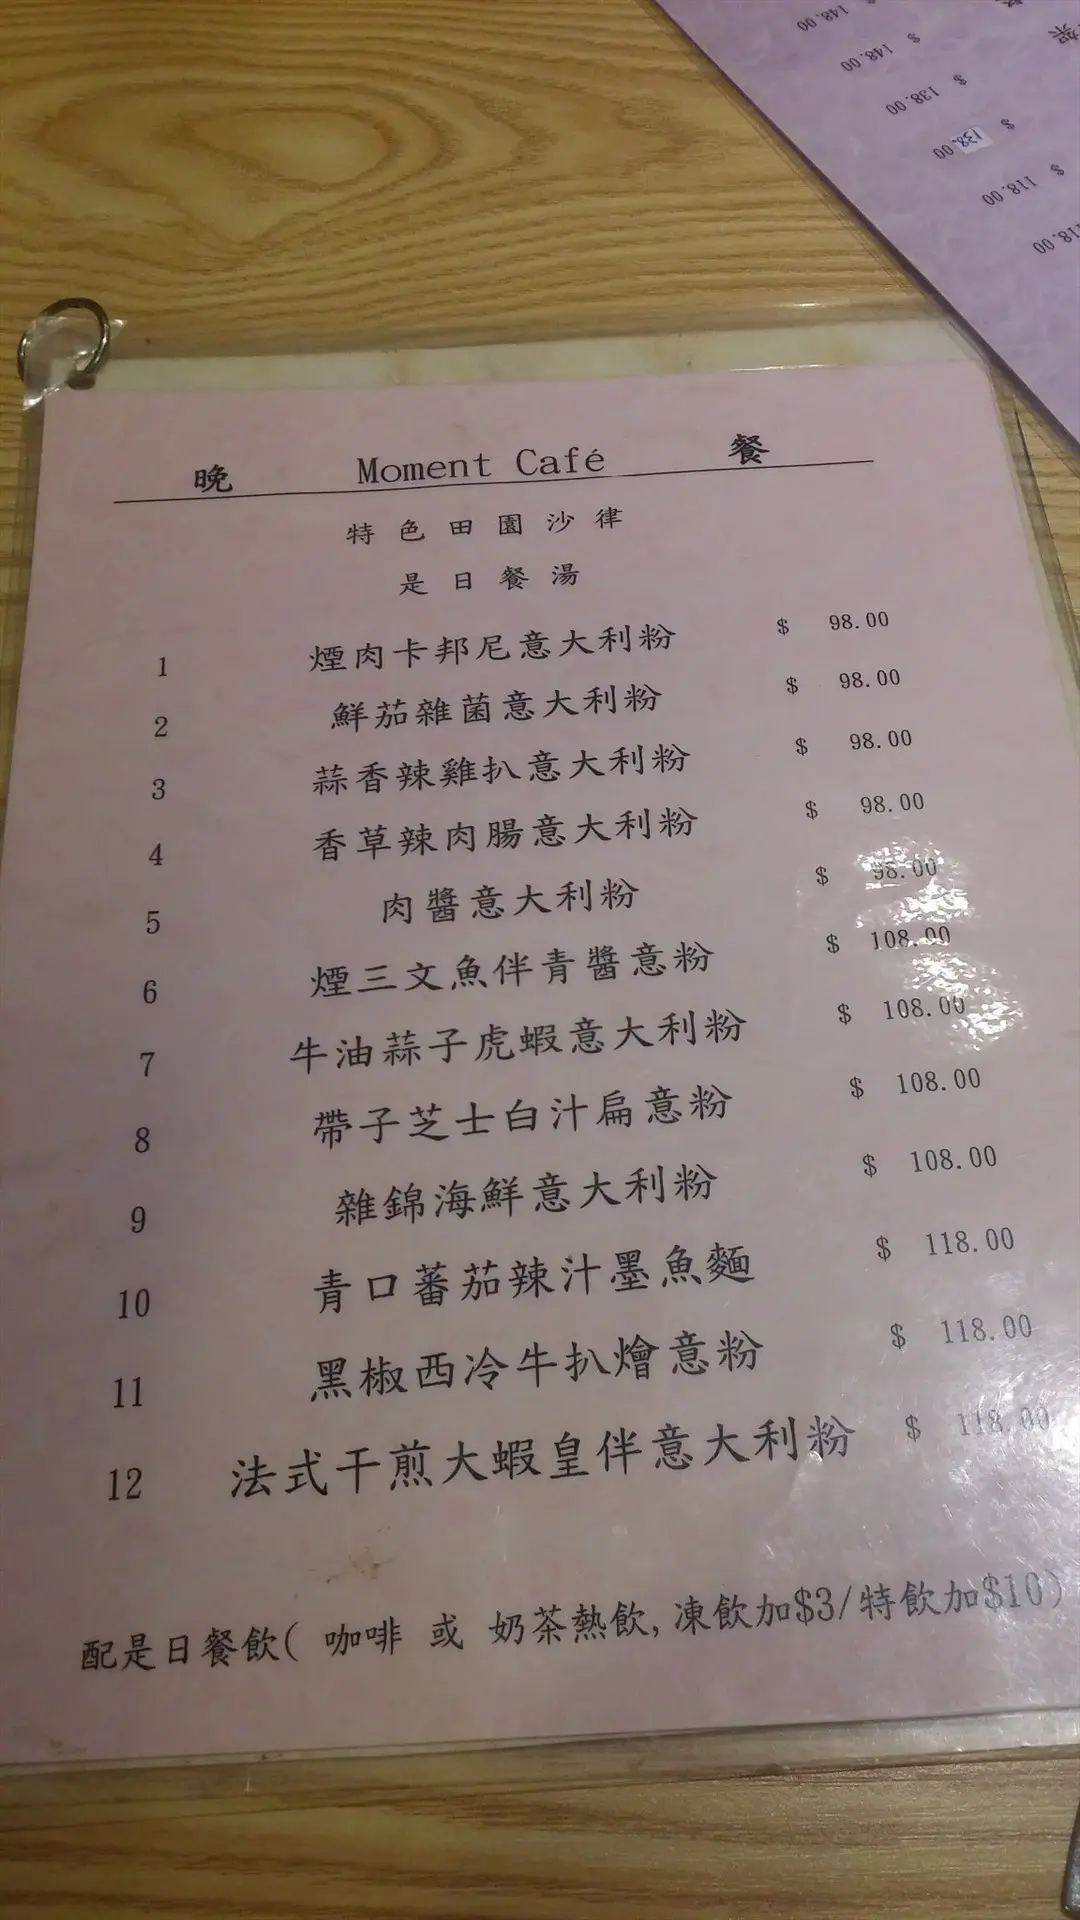 晚 Moment Café 餐
特色田園沙律
是日餐湯
1 煙肉卡邦尼意大利粉 $ 98.00
2 鮮茄雜菌意大利粉 $ 98.00
3 蒜香辣雞扒意大利粉 $ 98.00
4 香草辣肉腸意大利粉 $ 98.00
5 肉醬意大利粉 $ 98.00
6 煙三文魚伴青醬意粉 $ 108.00
7 牛油蒜子虎蝦意大利粉 $ 108.00
8 帶子芝士白汁扁意粉 $ 108.00
9 雜錦海鮮意大利粉 $ 108.00
10 青口蕃茄辣汁墨魚麵 $ 118.00
11 黑椒西冷牛扒燴意粉 $ 118.00
12 法式干煎大蝦皇伴意大利粉 $ 118.00
配是日餐飲( 咖啡 或 奶茶熱飲,凍飲加$3/特飲加$10)
$ 148.00
$ 148.00
$ 138.00
$ 138.00
$ 118.00